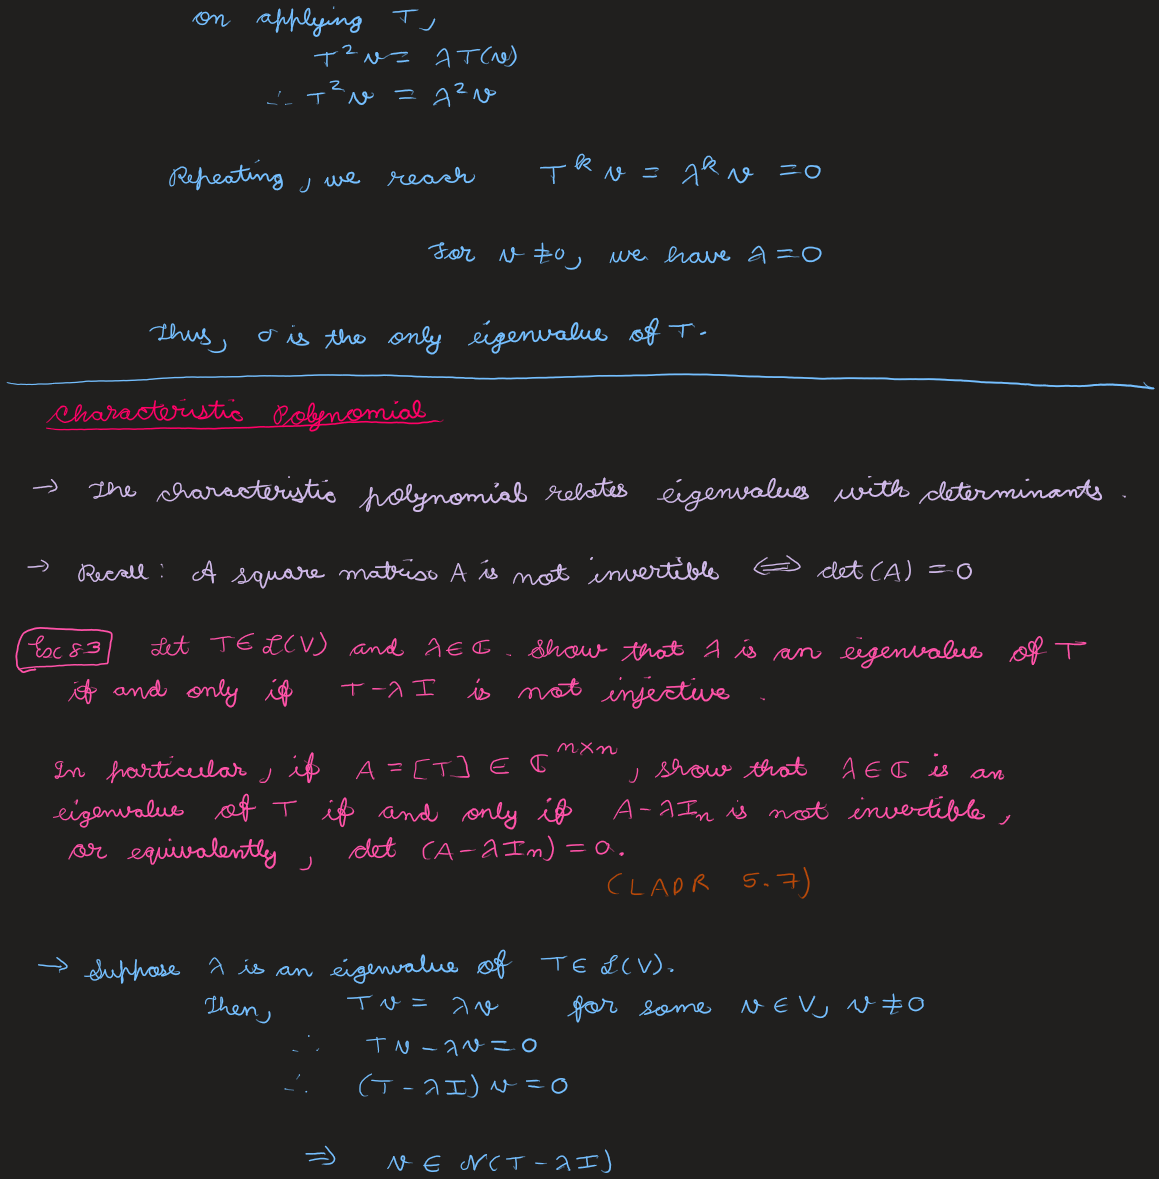 on applying T,
T²v = λT(v)
∴ T²v = λ²v
Repeating, we reach T^k v = λ^k v = 0
For v ≠ 0, we have λ = 0
Thus, 0 is the only eigenvalue of T.
Characteristic Polynomial
→ The characteristic polynomial relates eigenvalues with determinants.
→ Recall: A square matrix A is not invertible ⟺ det(A) = 0
Ex 83 Let T ∈ ℒ(V) and λ ∈ ℂ. Show that λ is an eigenvalue of T
if and only if T - λI is not injective.
In particular, if A = [T] ∈ ℂ^{n×n}, show that λ ∈ ℂ is an
eigenvalue of T if and only if A - λIₙ is not invertible,
or equivalently, det (A - λIₙ) = 0.
(LADR 5.7)
→ Suppose λ is an eigenvalue of T ∈ ℒ(V).
Then, Tv = λv for some v ∈ V, v ≠ 0
∴ Tv - λv = 0
∴ (T - λI)v = 0
⇒ v ∈ N(T - λI)